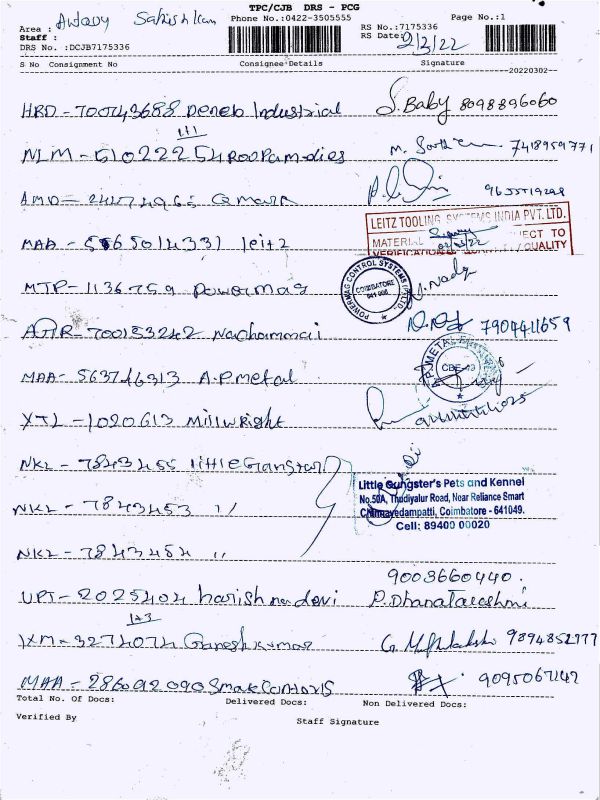 TPC/CJB DRS - PCG
Phone No.:0422-3505555
Page No.:1
Area :
Staff :
RS No.:7175336
RS Date: 2/3/22
DRS No. :DCJB7175336
S No Consignment No Consignee Details Signature
20220302
HRD - 700743688 Deneb Industrial S. Baby 8098896060
1+1
NLM - 51022254 Roopam dies M. 7418959771
AMD -
MAA - 5565014331 leitz
LEITZ TOOLING SYSTEMS INDIA PVT. LTD.
MATERIAL SUBJECT TO
VERIFICATION QUALITY
MTP - 1136759 Powermag
POWERMAG CONTROL SYSTEMS (P) LTD.
COIMBATORE
641 006
700153242 Nachammai 7904411659
MAA - 563746313 A.P. metal
A.P. METAL
CBE-13
XTL - 1020613 Millwright
NKL - 7843455 little Gangstar
NKL - 7843453 "
NKL - 7843454 "
Little Gungster's Pets and Kennel
No.50A, Thudiyalur Road, Near Reliance Smart
Chinnavedampatti, Coimbatore - 641049.
Cell: 89400 00020
9003660440.
UPT - 2025404 harish P. Dhanalakshmi
1+3
IXM - 3274074 Ganesh kumar G. 9894852777
MAA - 286092090 Smart Controls 9095067147
Total No. Of Docs: Delivered Docs: Non Delivered Docs:
Verified By Staff Signature